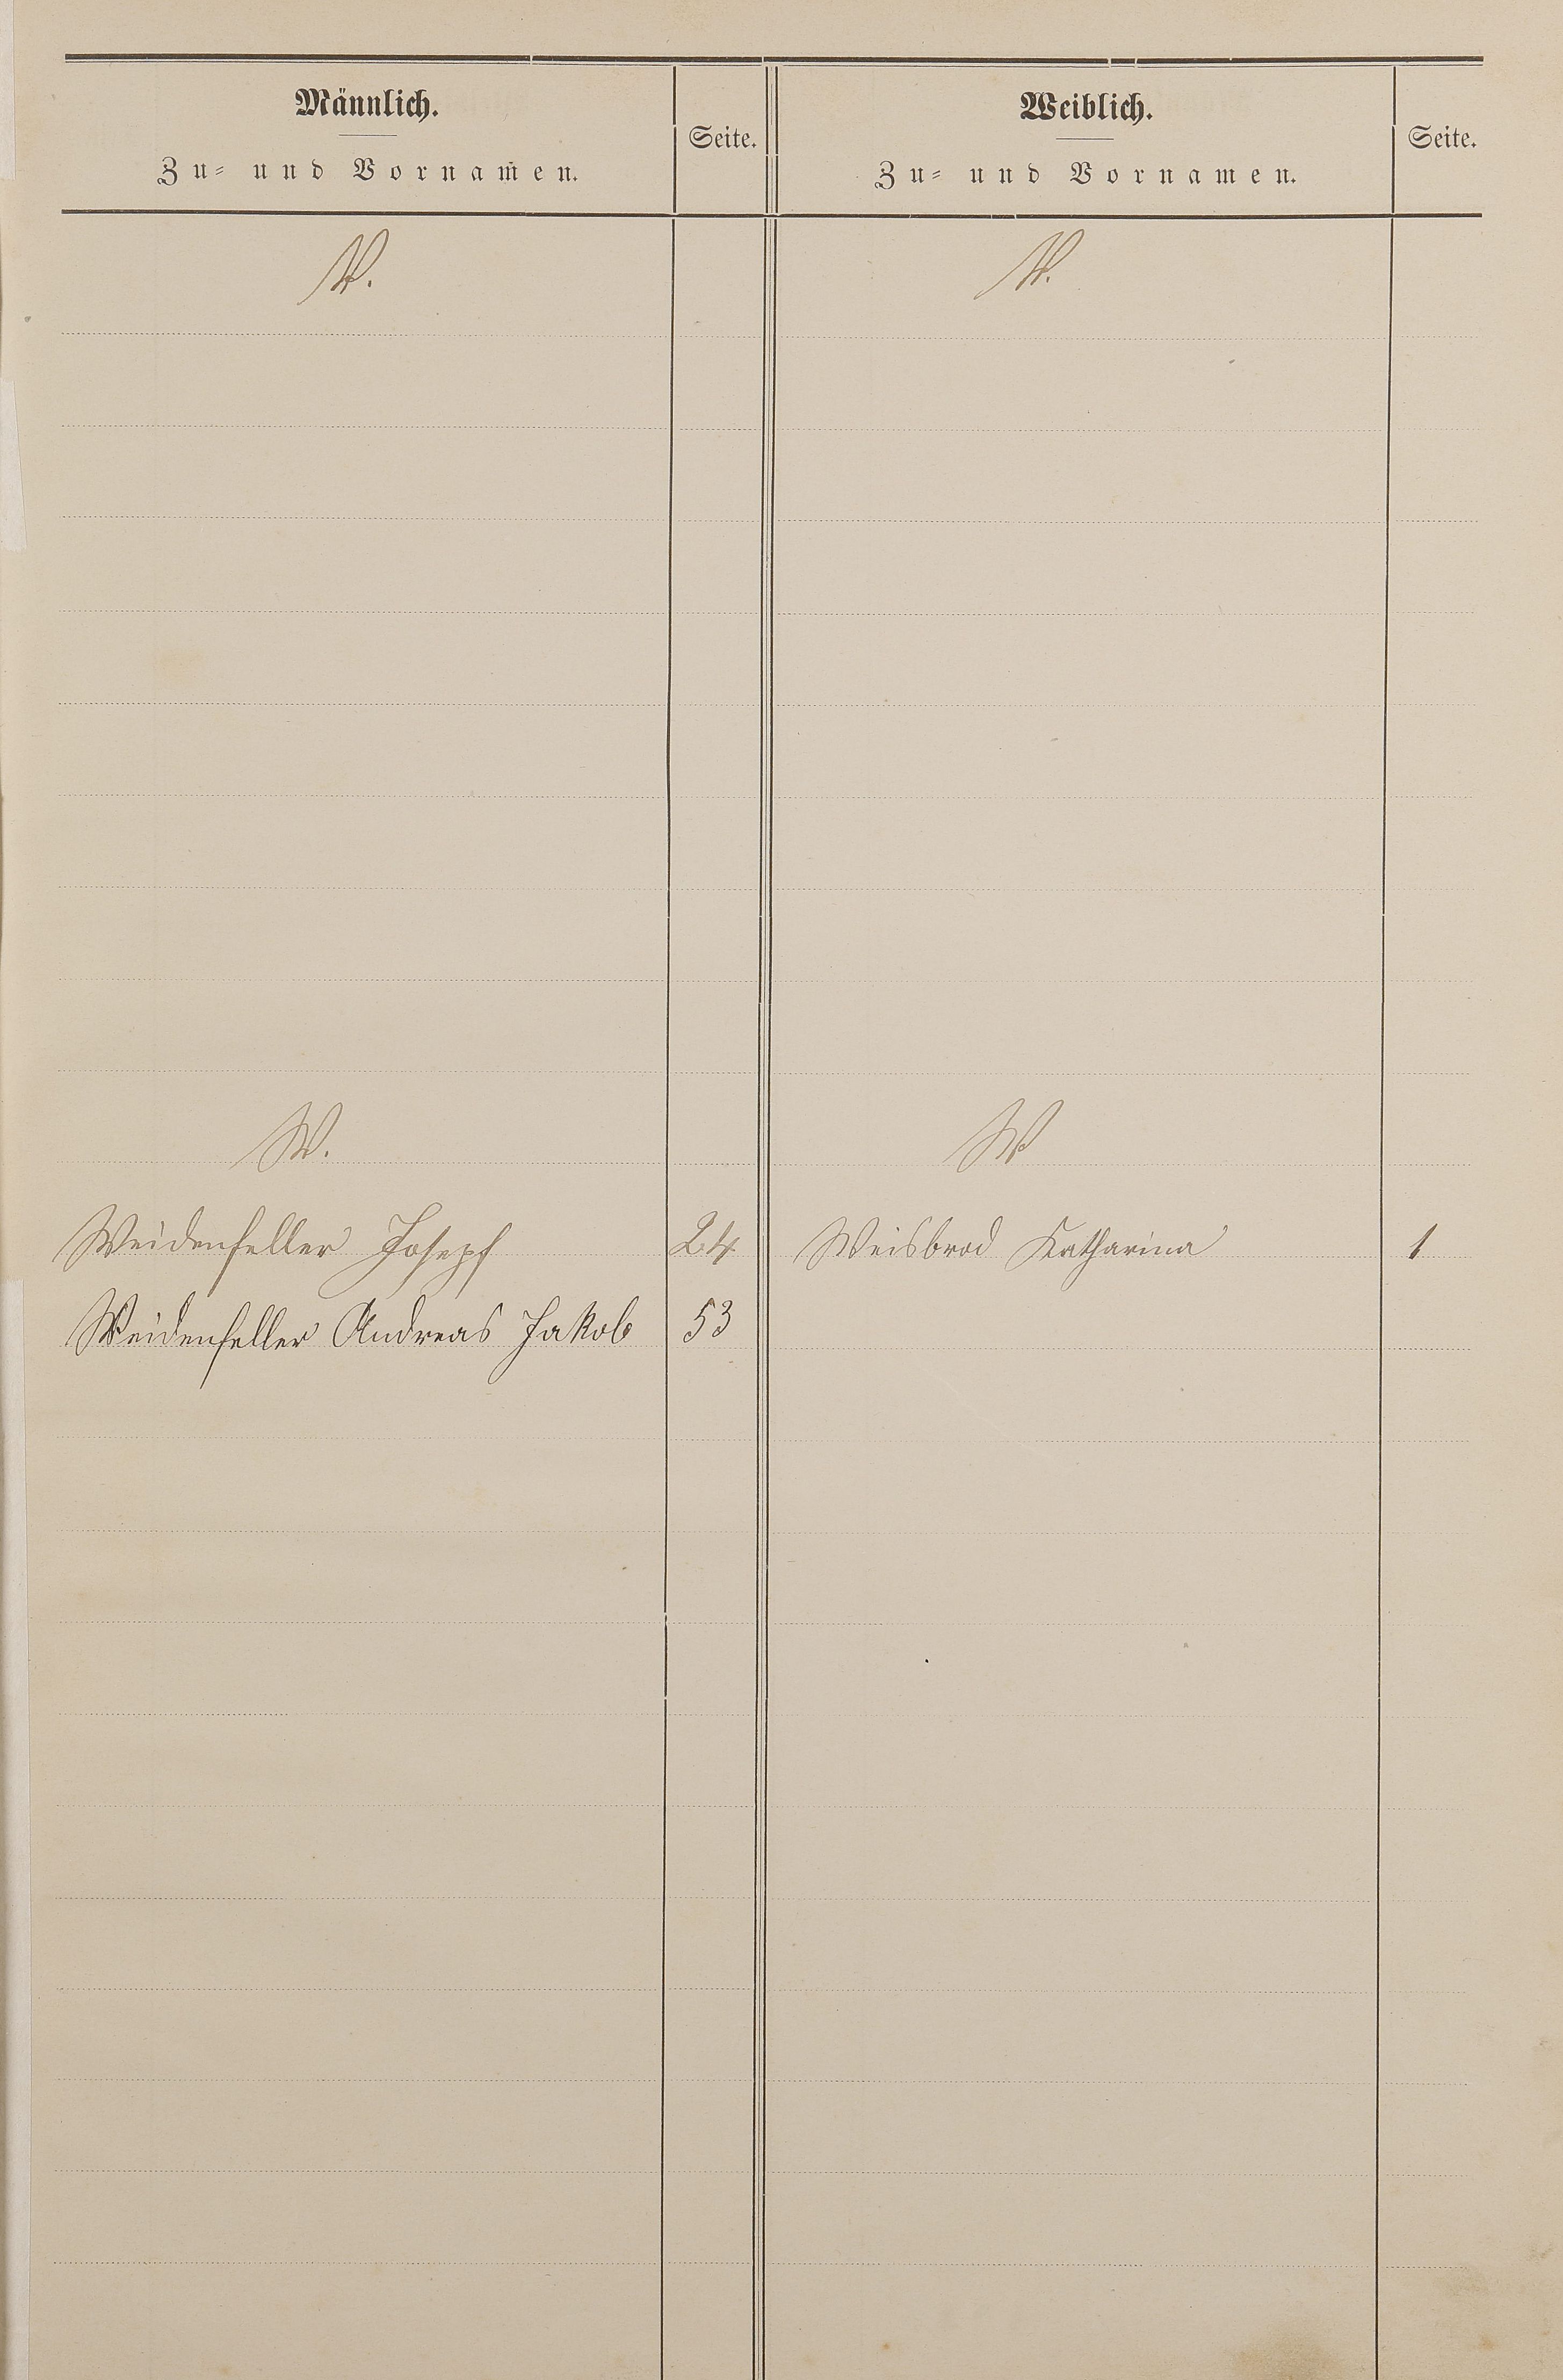 Männlich.
Zu- und Vornamen.
Seite.
Weiblich.
Zu- und Vornamen.
Seite.
V.
V.
W.
W
Weidenfeller Josepf 24 Weisbrod Katharina 1
Weidenfeller Andreas Jakob 53